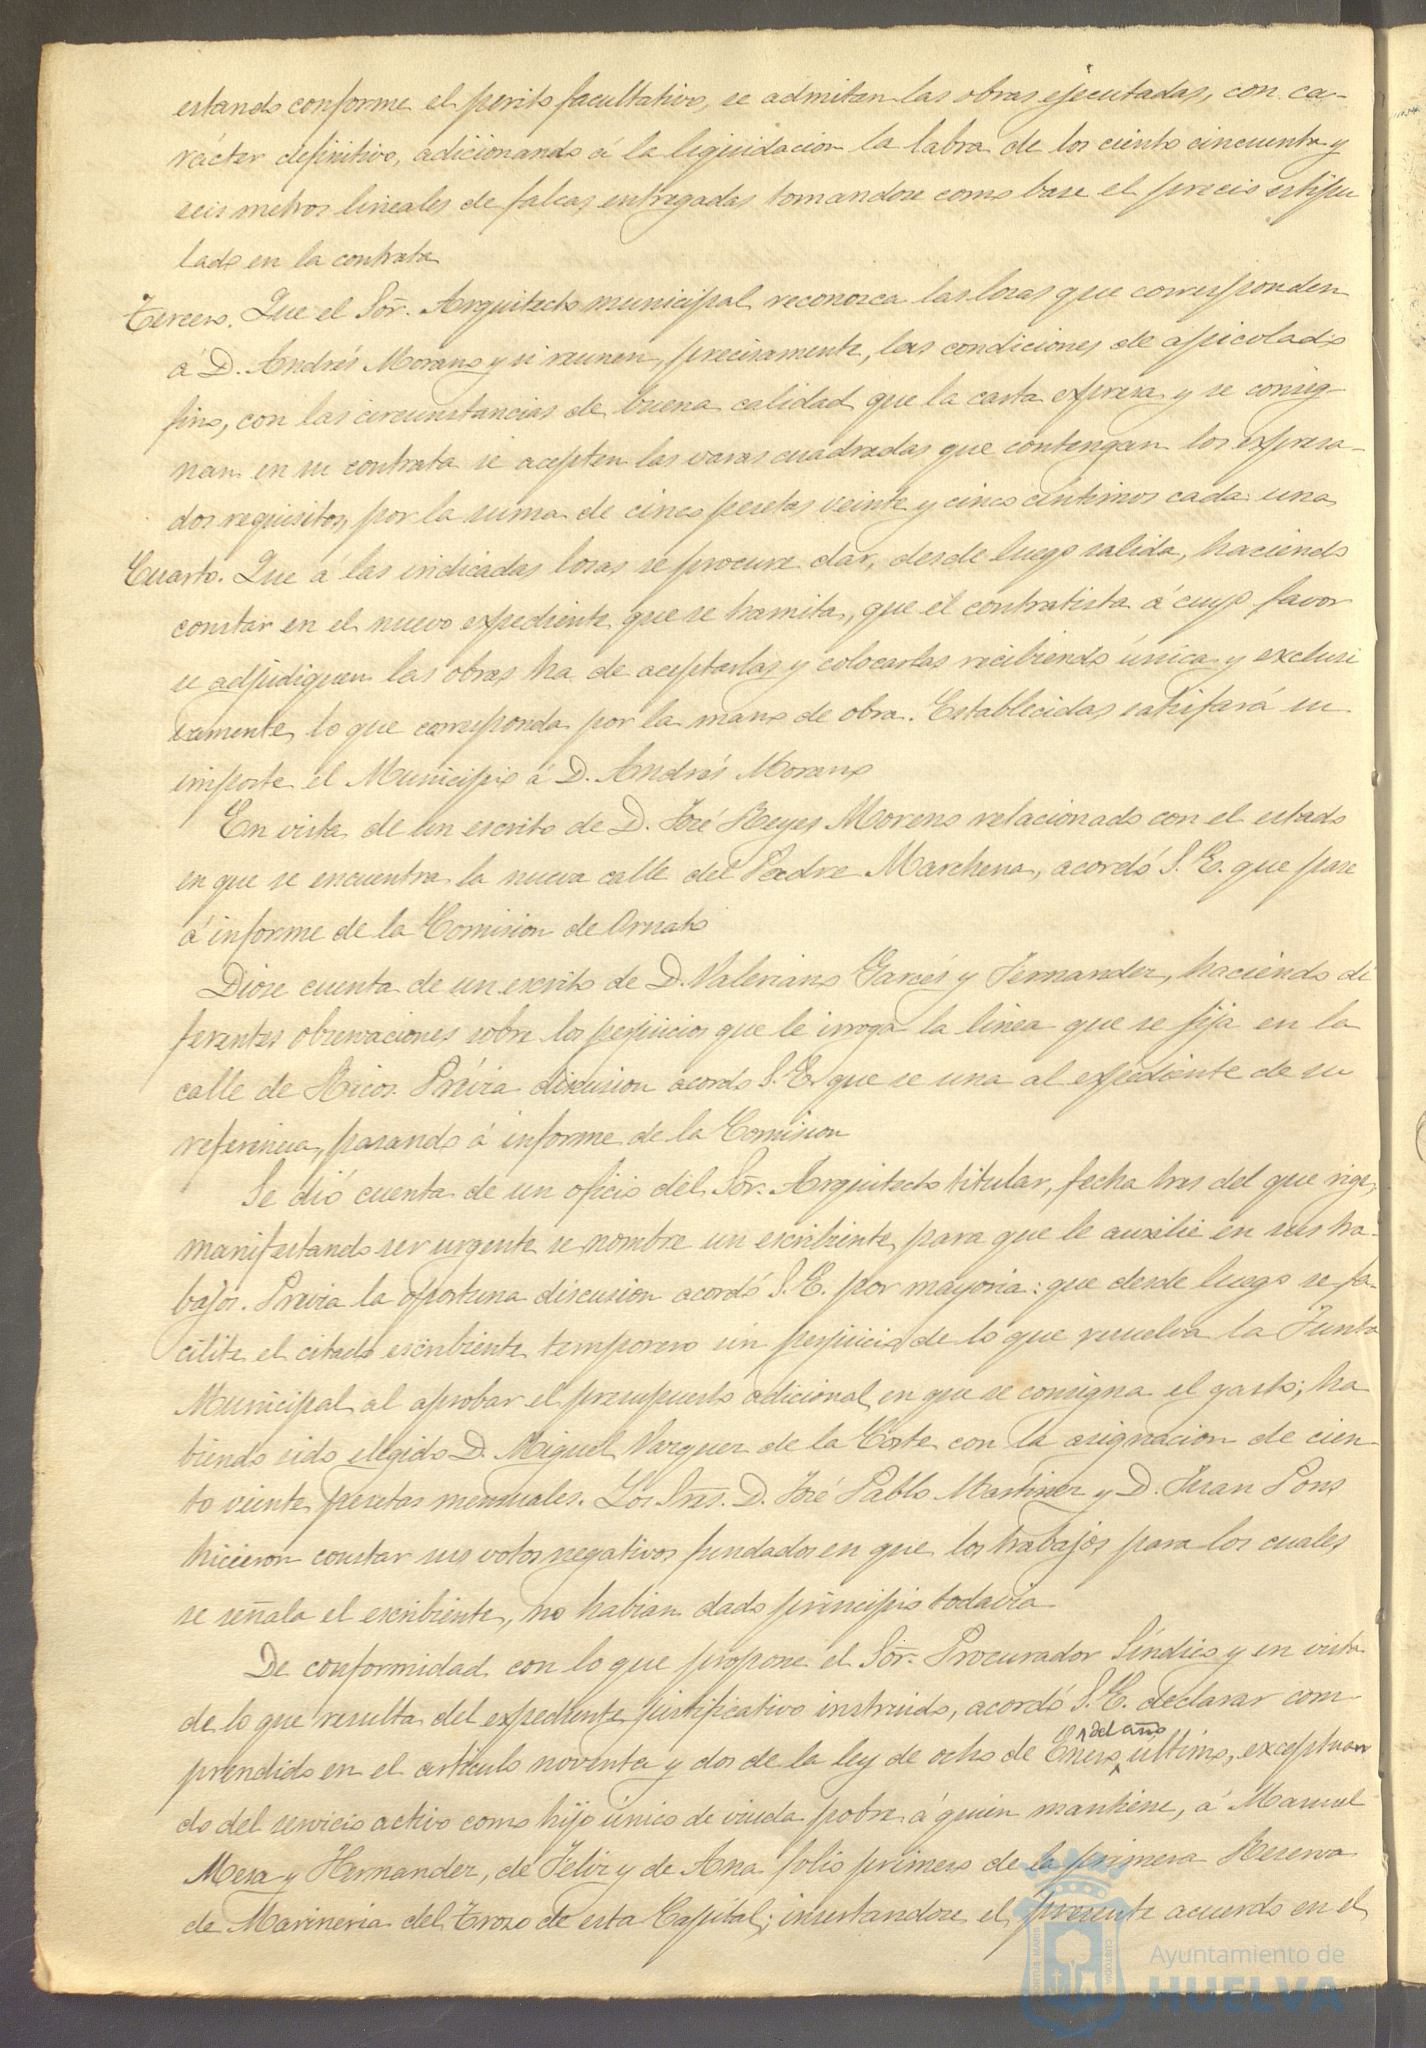 estando conforme el perito facultativo, se admitan las obras ejecutadas, con ca-
rácter definitivo, adicionando á la liquidacion la labra de los ciento cincuenta y
seis metros lineales de falcas entregadas tomandose como base el precio estipu
lado en la contrata
Tercero. Que el Sor. Arquitecto municipal reconozca las losas que corresponden
á D. Andrés Morano y si reunen, precisamente, las condiciones de apicolado
fino, con las circunstancias de buena calidad que la casta expresa y se consig-
nan en su contrata se acepten las varas cuadradas que contengan los expresa-
dos requisitos, por la suma de cinco pesetas veinte y cinco céntimos cada una
Cuarto. Que á las indicadas losas se procure dar, desde luego salida, haciendo
constar en el nuevo expediente que se tramita, que el contratista á cuyo favor
se adjudiquen las obras ha de aceptarlas y colocarlas recibiendo única y exclusi
vamente, lo que corresponda por la mano de obra. Establecidas satisfará su
importe el Municipio á D. Andrés Morano
En vista de un escrito de D. José Reyes Moreno relacionado con el estado
en que se encuentra la nueva calle del Padre Marchena, acordó S. E. que pase
á informe de la Comision de Ornato
Diose cuenta de un escrito de D. Valeriano Garcés y Fernandez, haciendo di
ferentes observaciones sobre los perjuicios que le irroga la linea que se fija en la
calle de Ricos. Prévia discusion acordó S. E. que se una al expediente de su
referencia, pasando á informe de la Comision
Se dió cuenta de un oficio del Sor. Arquitecto titular, fecha tres del que rige,
manifestando ser urgente se nombre un escribiente para que le auxilie en sus tra-
bajos. Prévia la oportuna discusion acordó S. E. por mayoria: que desde luego se fa-
cilite el citado escribiente temporero sin perjuicio de lo que resuelva la Junta
Municipal al aprobar el presupuesto adicional en que se consigna el gasto; ha
biendo sido elegido D. Miguel Vazquez de la Corte con la asignacion de cien-
to veinte pesetas mensuales. Los Sres. D. José Pablo Martinez y D. Juan Pons
hicieron constar sus votos negativos fundados en que los trabajos para los cuales
se señala el escribiente, no habian dado principio todavia
De conformidad con lo que propone el Sor. Procurador Síndico y en vista
de lo que resulta del expediente justificativo instruido, acordó S. E. declarar com-
prendido en el artículo noventa y dos de la ley de ocho de Enero del año último, exceptuan
do del servicio activo como hijo único de viuda pobre á quien mantiene, á Manuel
Mesa y Hernandez, de Feliz y de Ana folio primero de la primera Reserva
de Marineria del Trozo de esta Capital; insertandose el presente acuerdo en el
Ayuntamiento de
HUELVA